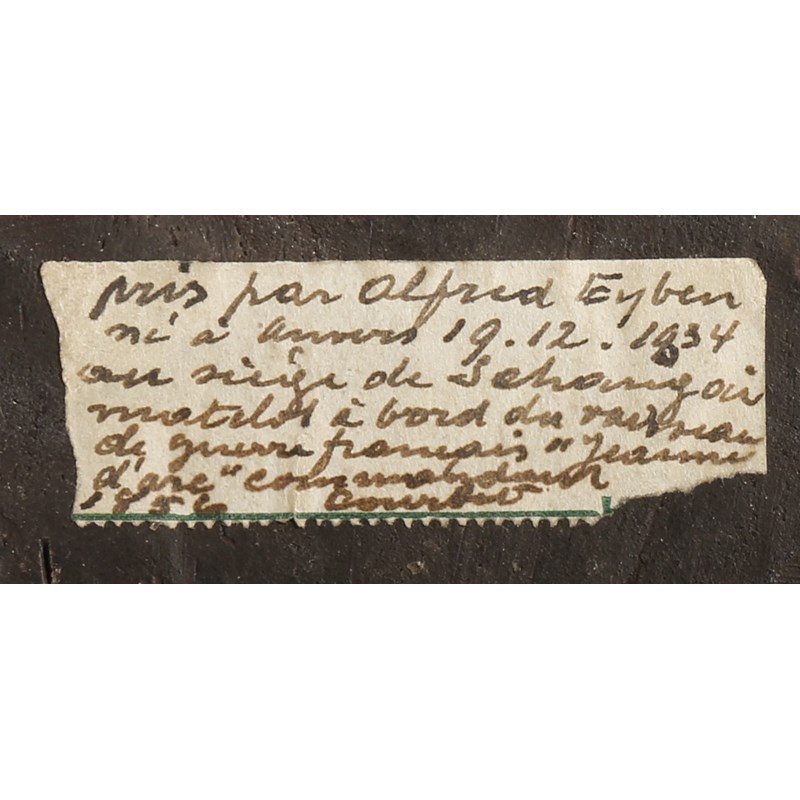 pris par Alfred Eyben
né à Anvers 19.12.1934
au siège de Schangaï
matelot à bord du vaisseau
de guerre français "Jeanne
d'arc" commandant
1856 Courbet